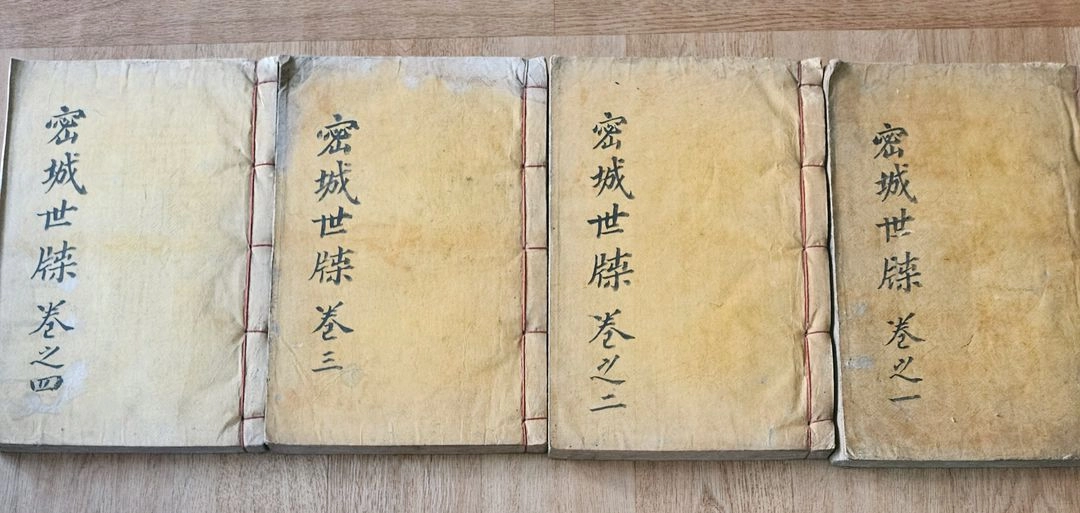 密城世牒 卷之一
密城世牒 卷之二
密城世牒 卷三
密城世牒 卷之四